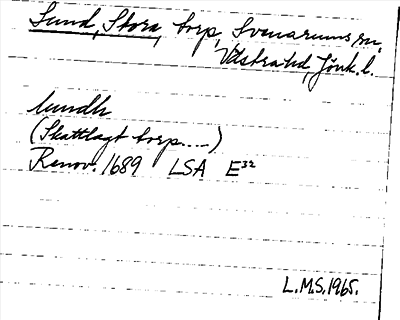 Sund, Stora, torp, Svenarums sn,
Västra hd, Jönk. l.
lundh
(Skattlagt torp....)
Renov. 1689 LSA E32
L.M.S. 1965.